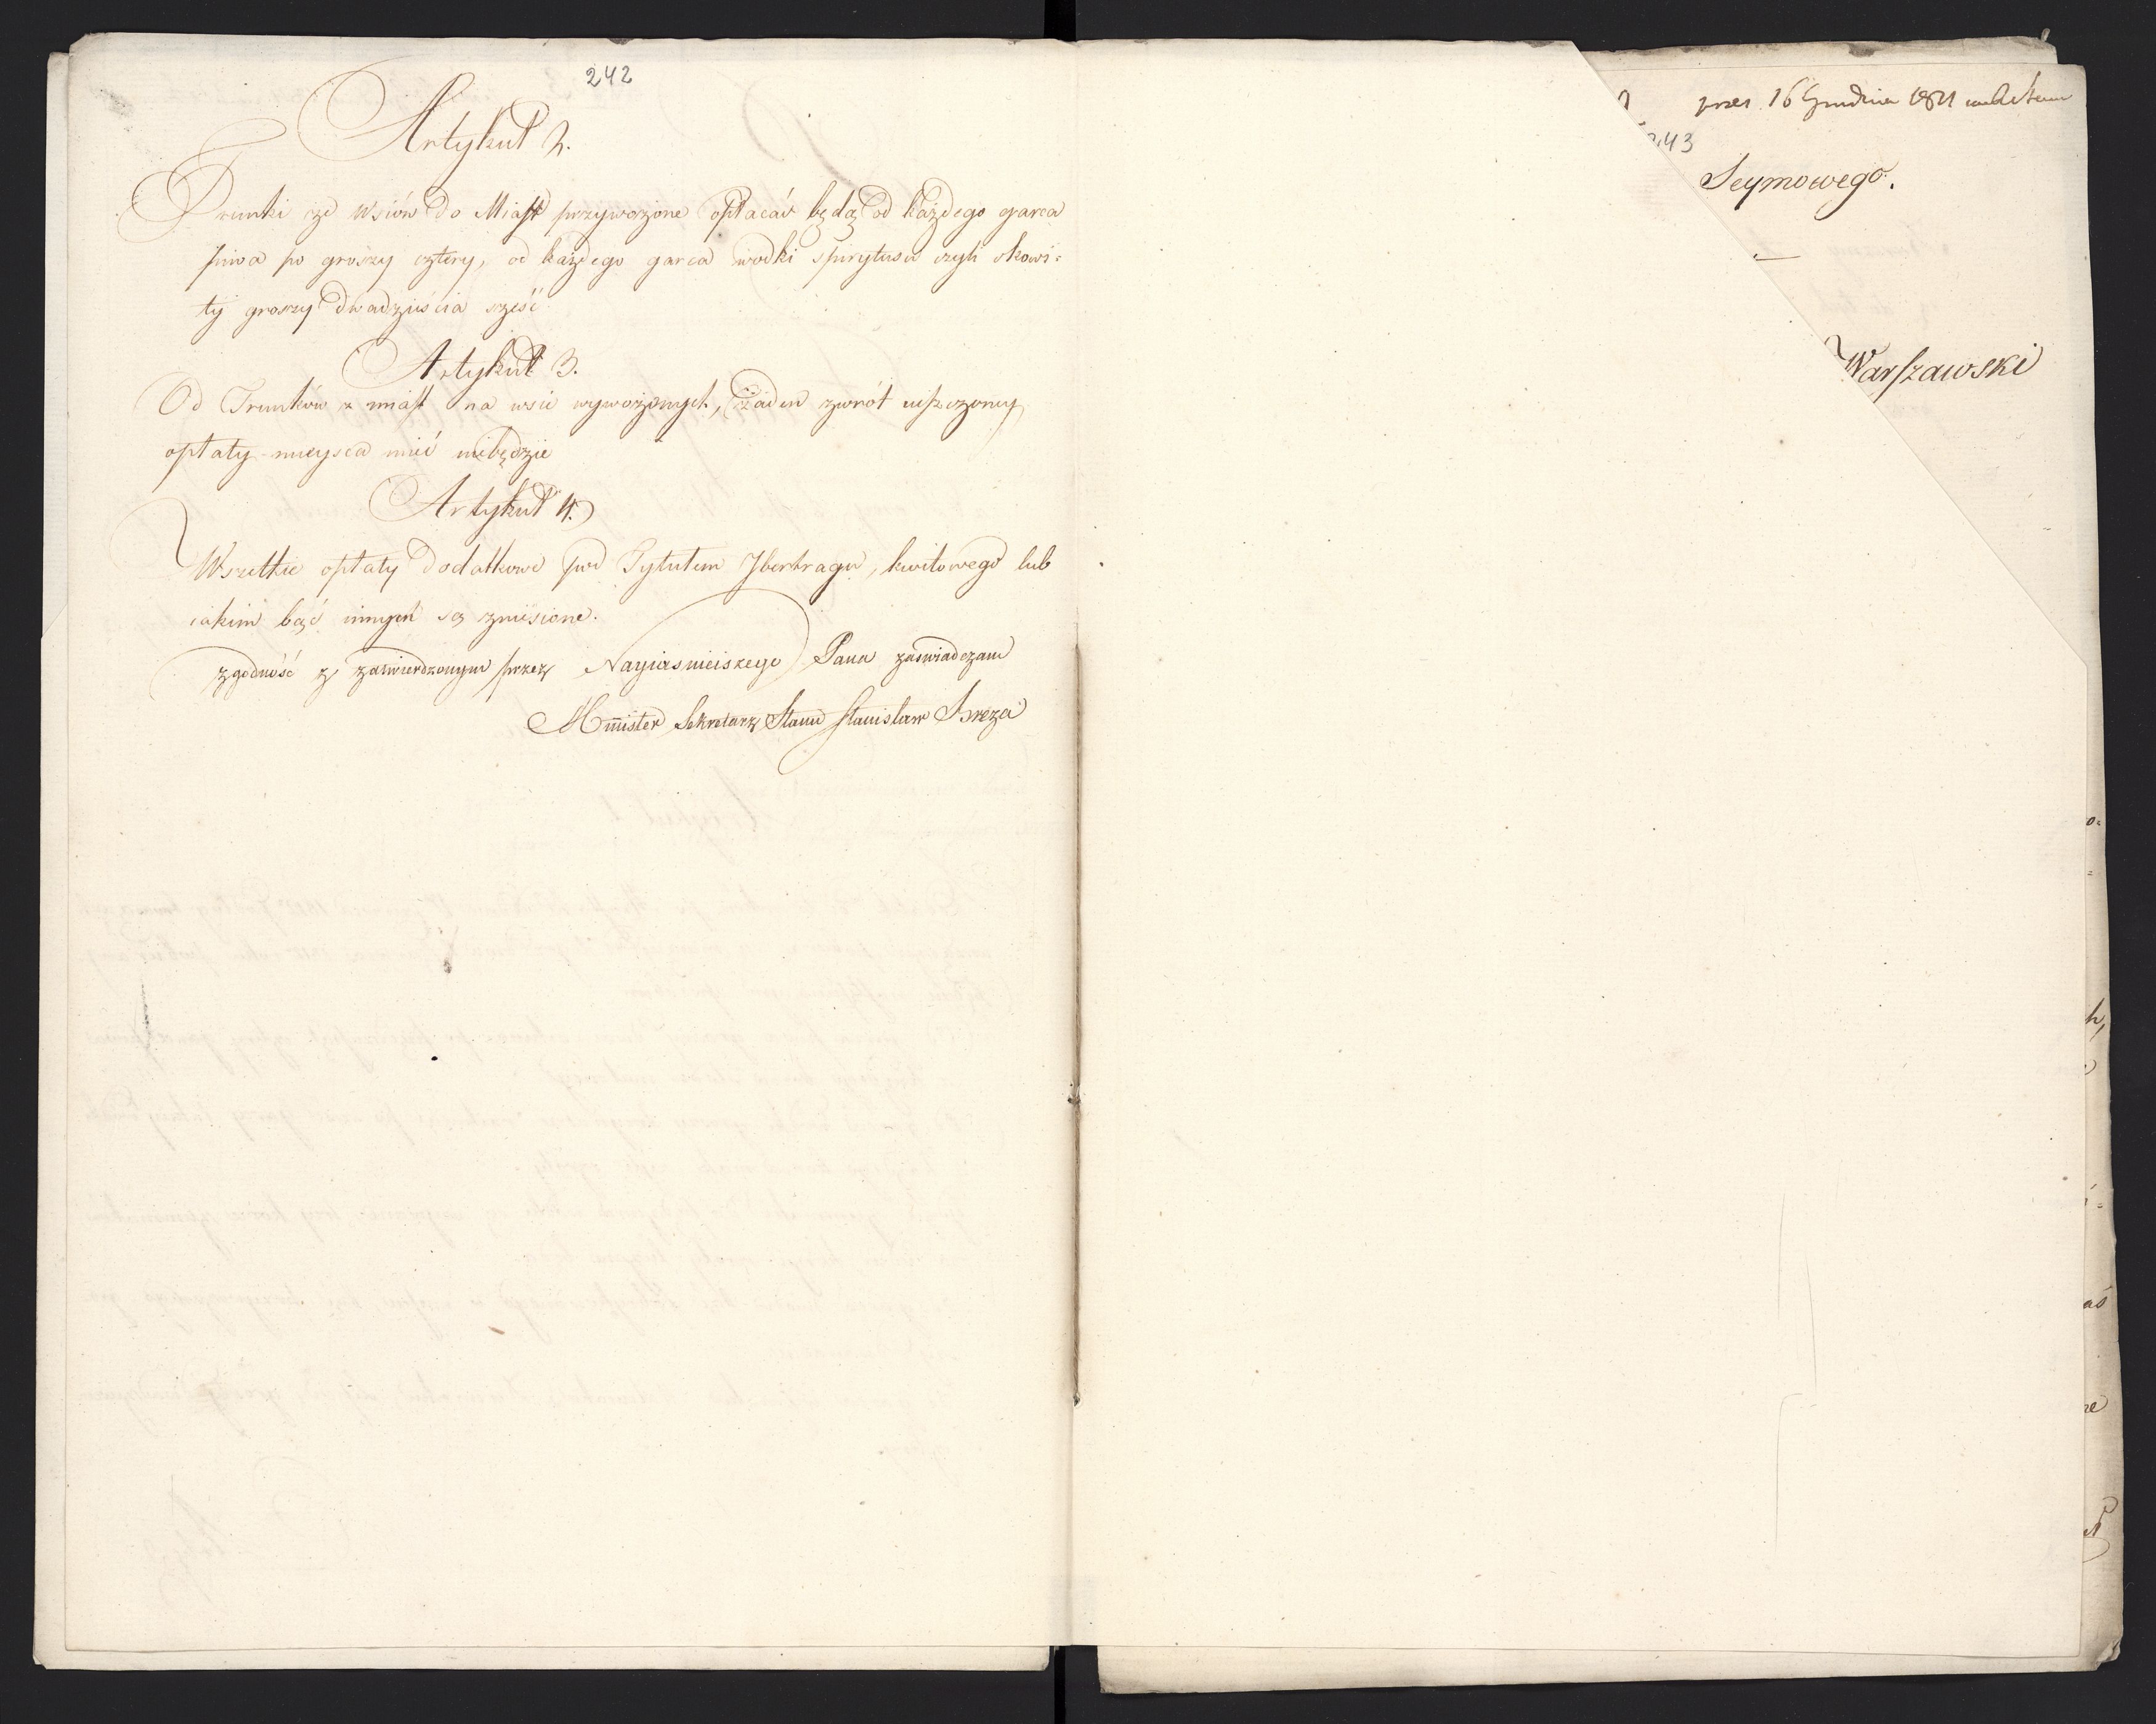 242
Artykuł 2.
Trunki ze wsiów do Miast przywożone opłacać będą od każdego garca
piwa po groszy cztery, od każdego garca wodki spirytusu czyli okowi=
ty groszy dwadzieścia sześć
Artykuł 3.
Od Trunków z miast na wsie wywożonych, żaden zwrót uiszczoney
opłaty mieysca mieć niebędzie
Artykuł 4.
Wszelkie opłaty dodatkowe pod Tytułem Ybertragu, kwitowego lub
iakim bądź innym są zniesione.
zgodność z zatwierdzonym przez Nayiaśnieiszego Pana zaświadczam
Minister Sekretarz Stanu Stanisław Breza
przez 16 Grudnia 1811
243
Seymowego.
Warszawski